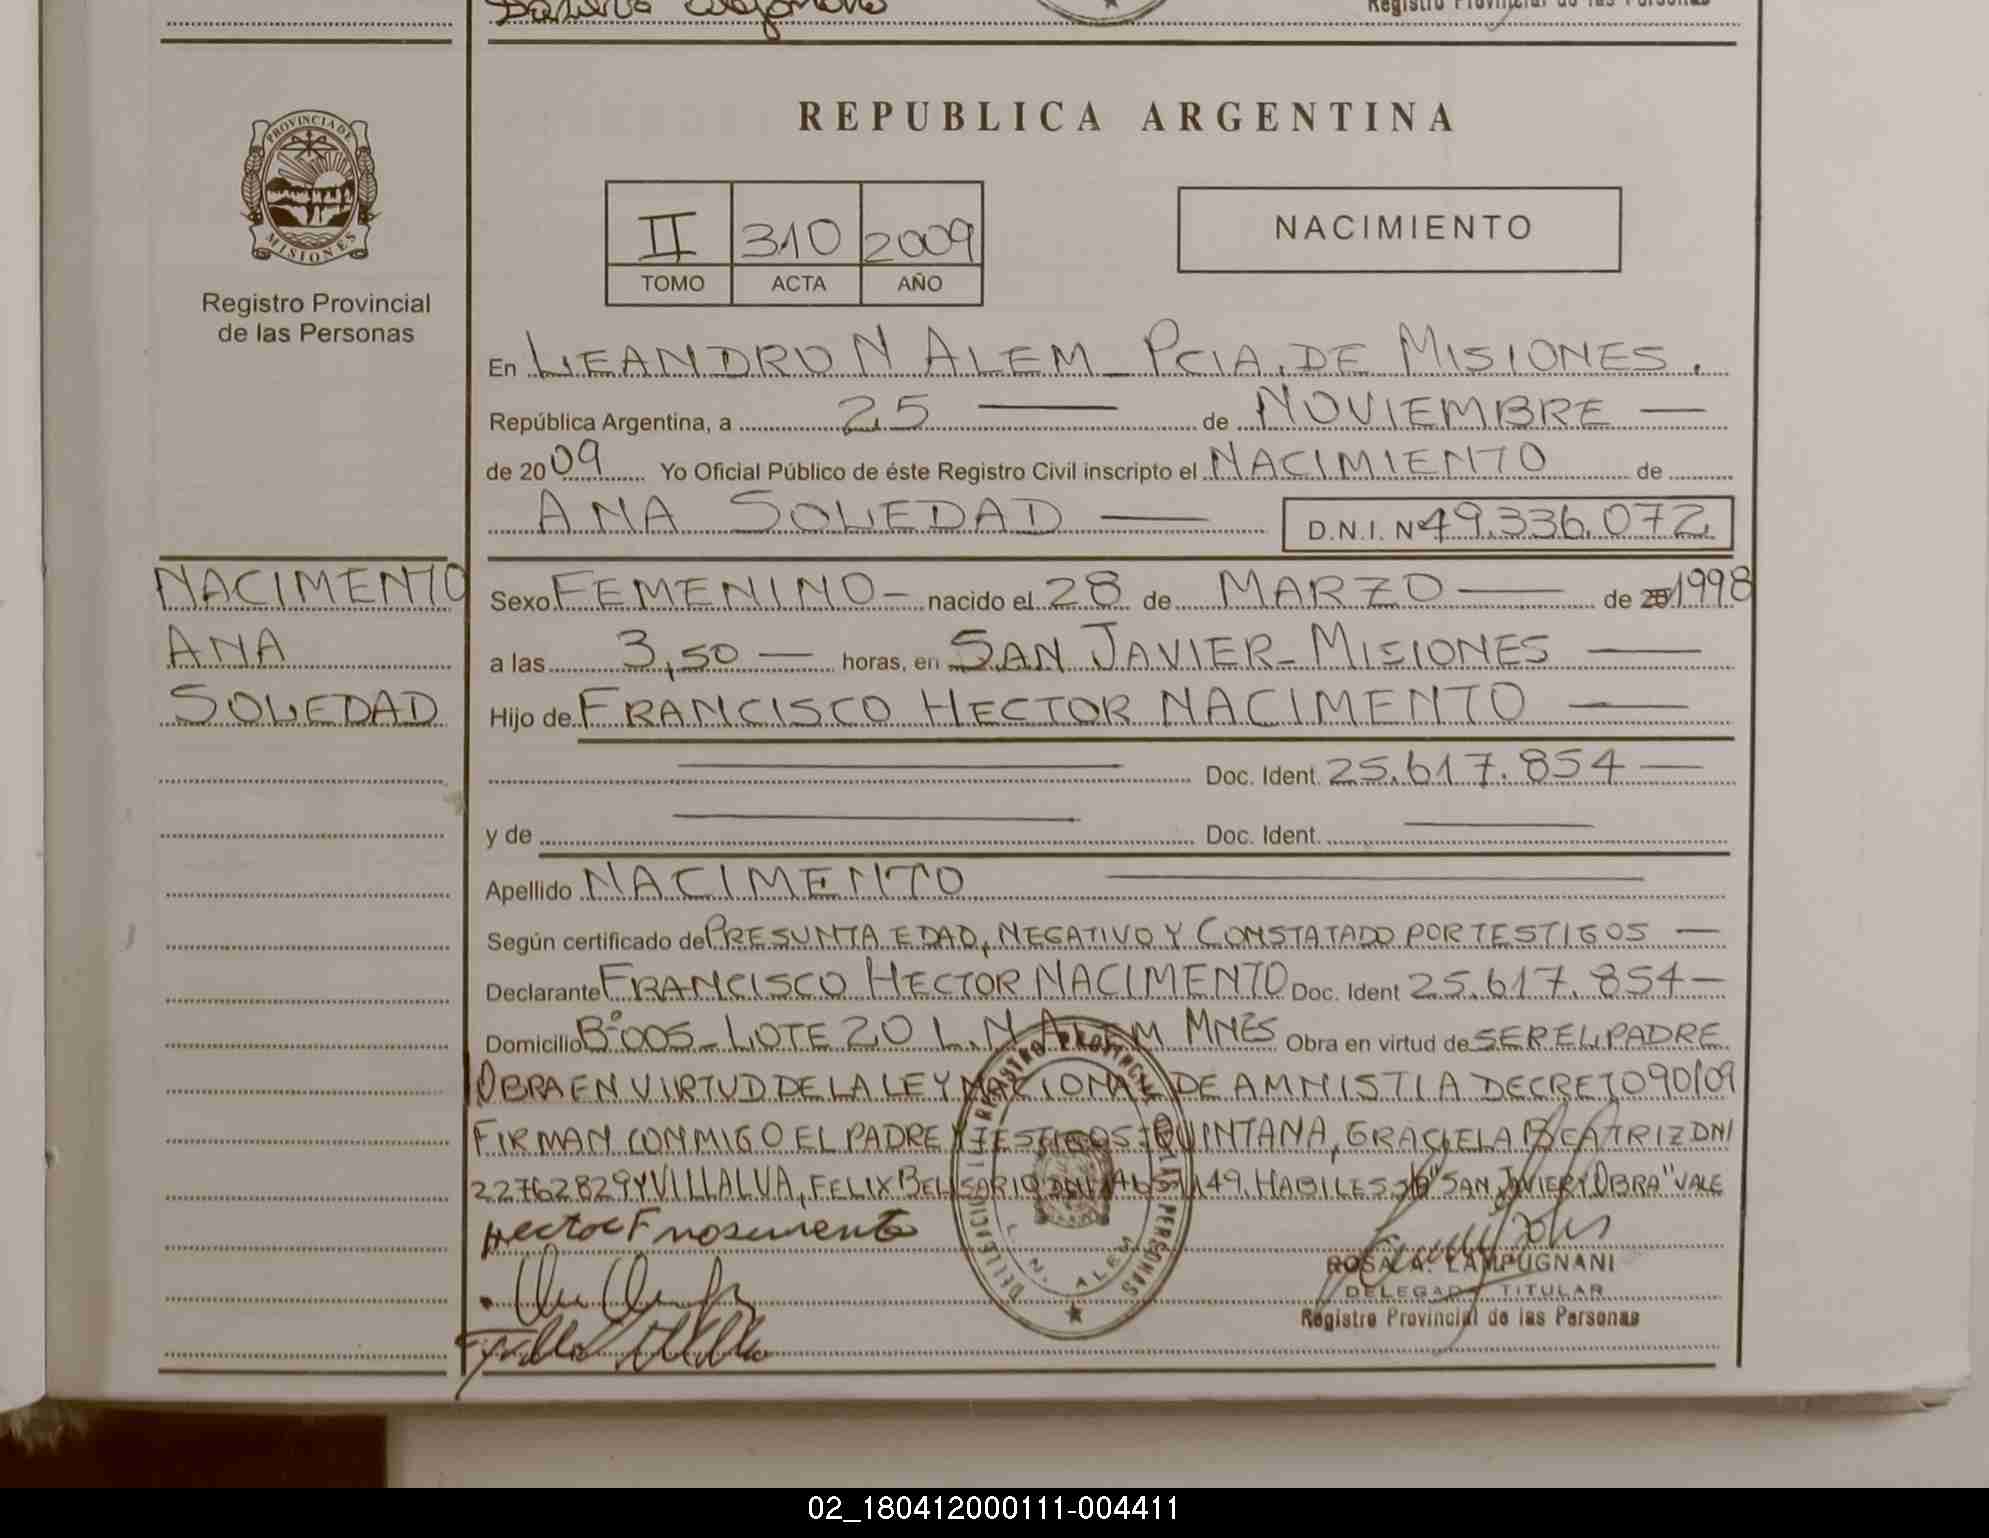 Registro Provincial de las Personas
REPUBLICA ARGENTINA
PROVINCIA DE
MISIONES
Registro Provincial
de las Personas
II 310 2009
TOMO ACTA AÑO
NACIMIENTO
En LEANDRO N ALEM - PCIA. DE MISIONES.
República Argentina, a 25 — de NOVIEMBRE —
de 2009 Yo Oficial Público de éste Registro Civil inscripto el NACIMIENTO de
ANA SOLEDAD — D.N.I. Nº 49.336.072
NACIMENTO
ANA
SOLEDAD
Sexo FEMENINO - nacido el 28 de MARZO — de 1998
a las 3,50 — horas, en SAN JAVIER - MISIONES —
Hijo de FRANCISCO HECTOR NACIMENTO —
Doc. Ident. 25.617.854 —
y de Doc. Ident.
Apellido NACIMENTO
Según certificado de PRESUNTA EDAD, NEGATIVO Y CONSTATADO POR TESTIGOS —
Declarante FRANCISCO HECTOR NACIMENTO Doc. Ident 25.617.854 —
Domicilio Bº 005 - LOTE 20 L.N ALEM MNES Obra en virtud de SER EL PADRE
OBRA EN VIRTUD DE LA LEY NACIONAL DE AMNISTIA DECRETO 90/09
FIRMAN CONMIGO EL PADRE Y TESTIGOS: QUINTANA, GRACIELA BEATRIZ DNI
22762829 Y VILLALVA, FELIX BELISARIO DNI HABILES "SAN JAVIER Y OBRA" VALE
Hector F
REGISTRO PROVINCIAL DE LAS PERSONAS
L. N. ALEM
ROSA A. LAMPUGNANI
DELEGADA TITULAR
Registro Provincial de las Personas
02_180412000111-004411